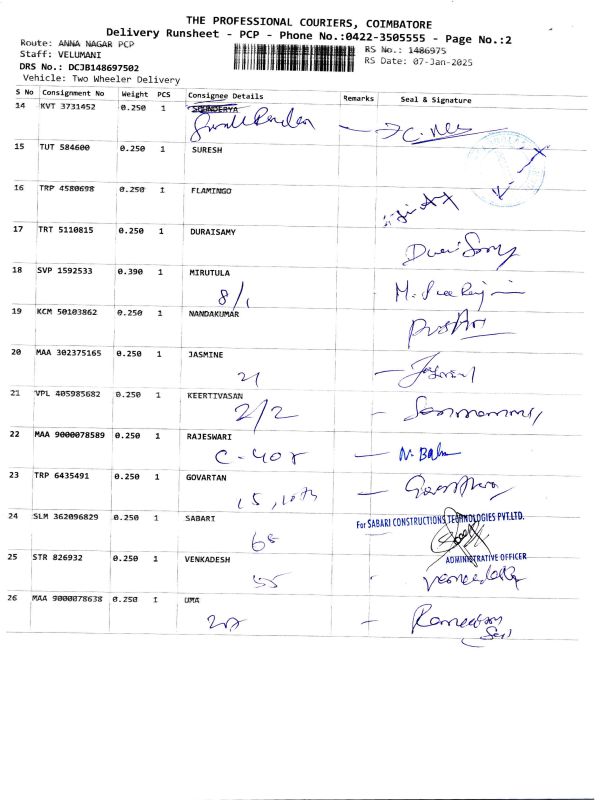 THE PROFESSIONAL COURIERS, COIMBATORE
Delivery Runsheet - PCP - Phone No.:0422-3505555 - Page No.:2
Route: ANNA NAGAR PCP
Staff: VELUMANI
DRS No.: DCJB148697502
Vehicle: Two Wheeler Delivery
RS No.: 1486975
RS Date: 07-Jan-2025
S No Consignment No Weight PCS Consignee Details Remarks Seal & Signature
14 KVT 3731452 0.250 1 SOUNDERYA
15 TUT 584600 0.250 1 SURESH
16 TRP 4580698 0.250 1 FLAMINGO
17 TRT 5110815 0.250 1 DURAISAMY
18 SVP 1592533 0.390 1 MIRUTULA
8/1
19 KCM 50103862 0.250 1 NANDAKUMAR
20 MAA 302375165 0.250 1 JASMINE
21
21 VPL 405985682 0.250 1 KEERTIVASAN
2/2
22 MAA 9000078589 0.250 1 RAJESWARI
C-408 - N. Balu
23 TRP 6435491 0.250 1 GOVARTAN
24 SLM 362096829 0.250 1 SABARI
For SABARI CONSTRUCTIONS TECHNOLOGIES PVT.LTD.
68
ADMINISTRATIVE OFFICER
25 STR 826932 0.250 1 VENKADESH
55
26 MAA 9000078638 0.250 1 UMA